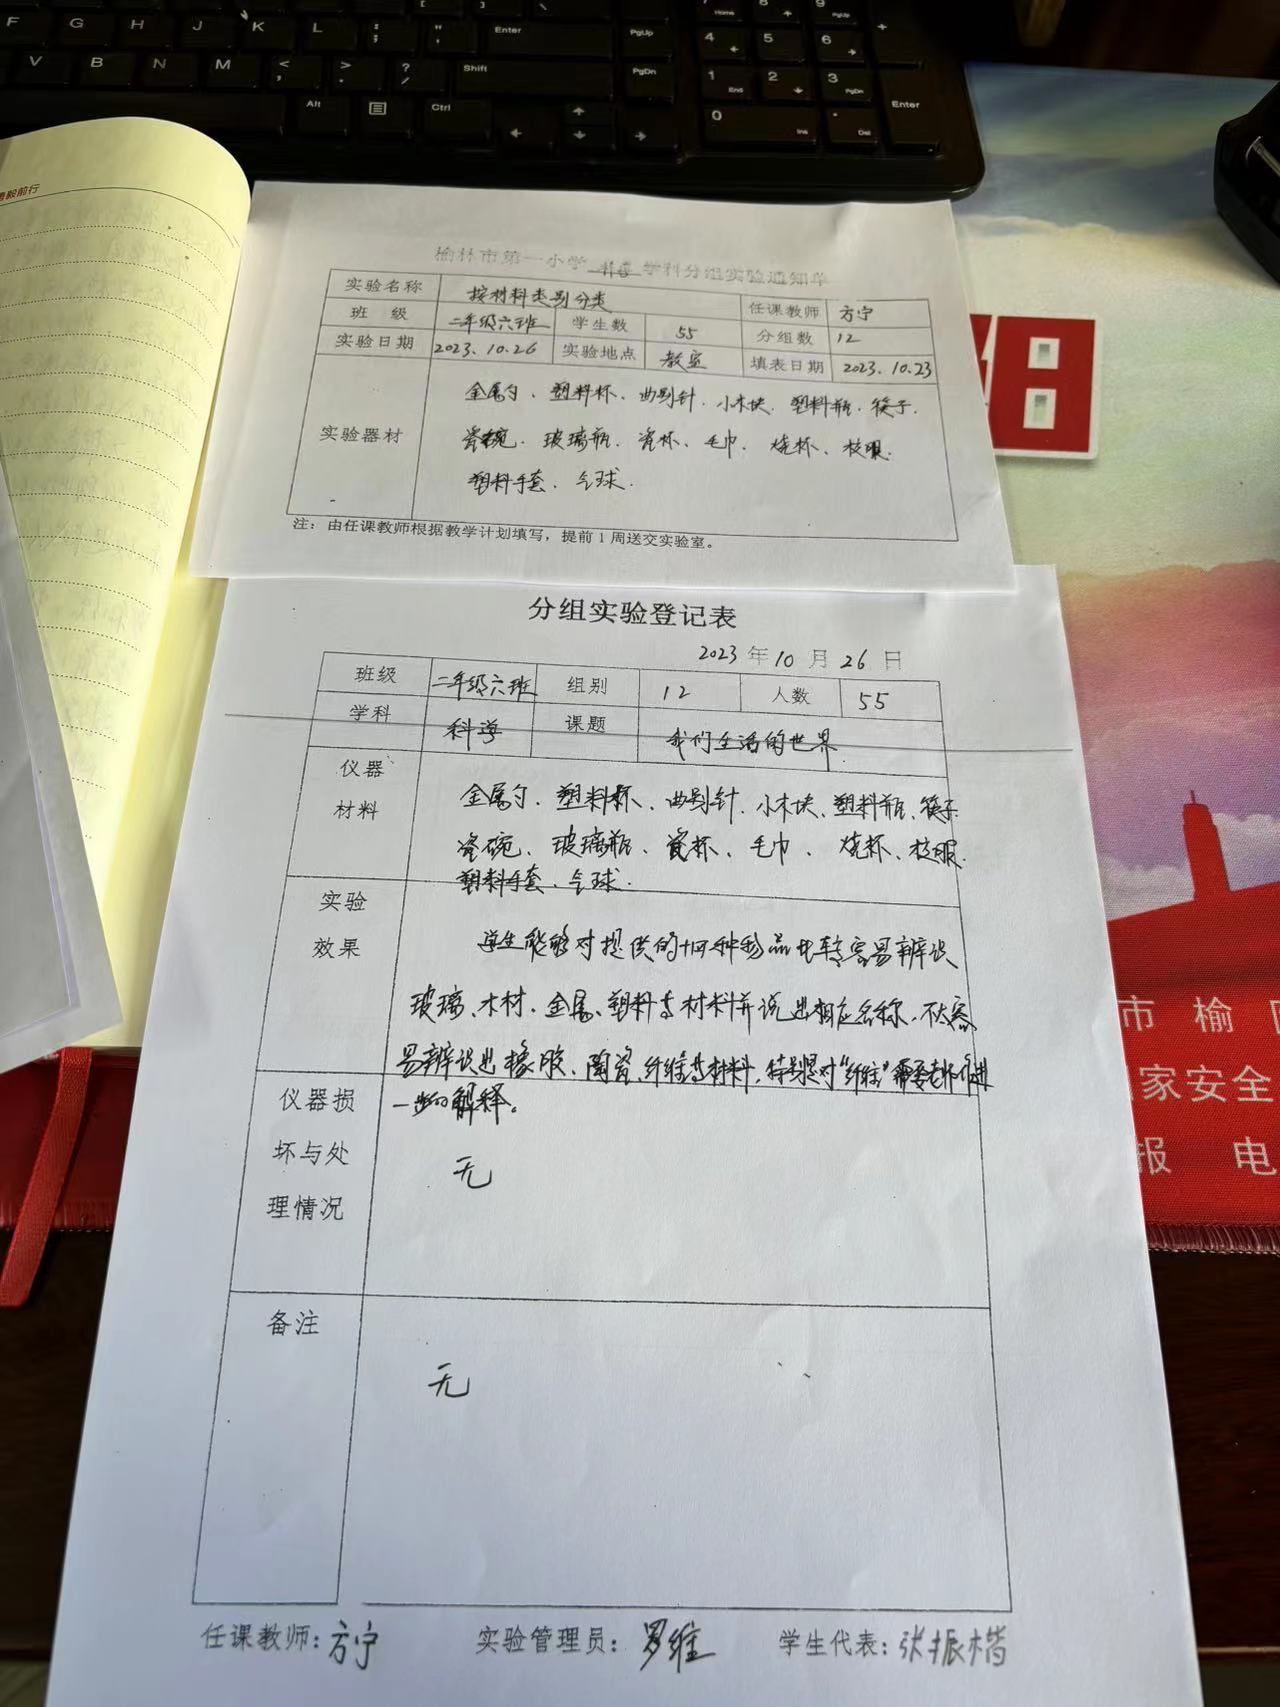 F G H J K L Enter PgUp 7 Home 8 9 PgUp
V B N M < , > . ? / Shift PgDn 4 5 6
Alt Ctrl 1 End 2 3 PgDn Enter
0 Ins . Del
前行
榆林市第一小学 科学 学科分组实验通知单
实验名称 按材料类别分类 任课教师 方宁
班 级 二年级六班 学生数 55 分组数 12
实验日期 2023.10.26 实验地点 教室 填表日期 2023.10.23
金属勺、塑料杯、曲别针、小木块、塑料瓶、筷子、
实验器材 瓷碗、玻璃瓶、瓷杯、毛巾、烧杯、校服、
塑料手套、气球.
注：由任课教师根据教学计划填写，提前1周送交实验室。
分组实验登记表
2023年10月26日
班级 二年级六班 组别 12 人数 55
学科 科学 课题 我们生活的世界
仪器 金属勺、塑料杯、曲别针、小木块、塑料瓶、筷子
材料 瓷碗、玻璃瓶、瓷杯、毛巾、烧杯、校服、
塑料手套、气球.
实验
效果 学生能够对提供的十四种物品比较容易辨识
玻璃、木材、金属、塑料等材料并说出相应名称，不太容
易辨识出橡胶、陶瓷、纤维等材料，特别是对“纤维”需要老师进
一步的解释。
仪器损
坏与处 无
理情况
备注
无
任课教师：方宁 实验管理员：罗维 学生代表：张振楷
市 榆
家安全
报 电